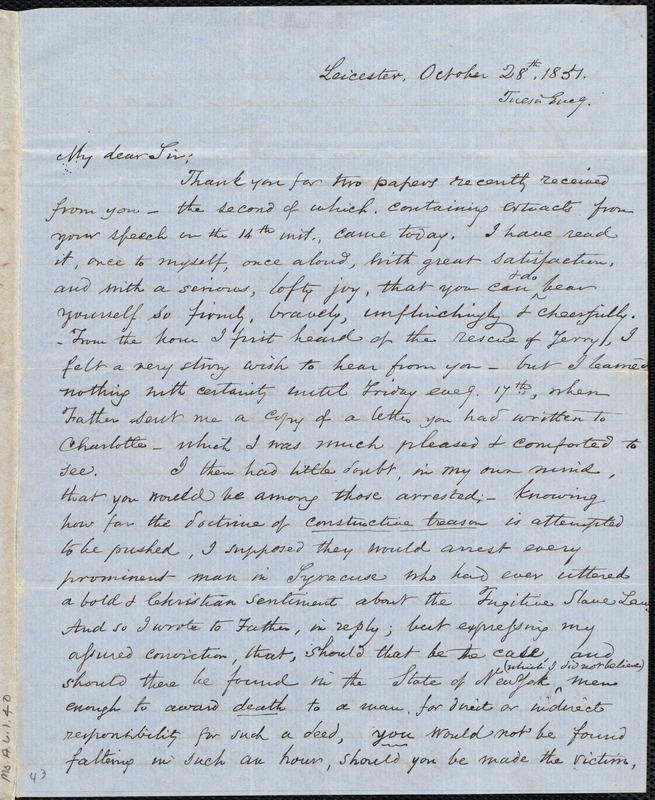 Leicester, October 28th, 1851.
Tues. Eveg.
My dear Sir;
Thank you for two papers recently received
from you - the second of which, containing extracts from
your speech on the 14th inst., came today. I have read
it, once to myself, once aloud, with great satisfaction,
and with a serious, lofty joy, that you can & do bear
yourself so firmly, bravely, unflinchingly & cheerfully.
- From the hour I first heard of the rescue of Jerry, I
felt a very strong wish to hear from you - but I learned
nothing with certainty until Friday eveg. 17th, when
Father sent me a copy of a letter you had written to
Charlotte - which I was much pleased & comforted to
see. I then had little doubt, in my own mind,
that you would be among those arrested; - knowing
how far the doctrine of constructive treason is attempted
to be pushed, I supposed they would arrest every
prominent man in Syracuse who had ever uttered
a bold & Christian sentiment about the Fugitive Slave Law.
And so I wrote to Father, in reply; but expressing my
assured conviction, that, should that be the case, and
should there be found in the State of New York (which I did not believe) men
enough to award death to a man for direct or indirect
responsibility for such a deed, you would not be found
faltering in such an hour, should you be made the victim,
Ms. A.6.1. 40
43